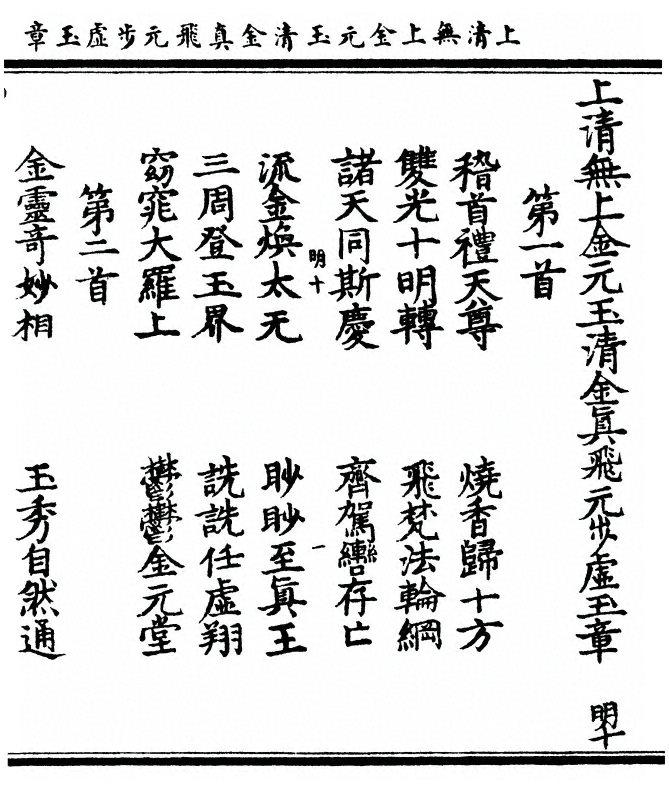 上清無上金元玉清金真飛元步虛玉章
上清無上金元玉清金眞飛元步虛玉章 明十
第一首
稽首禮天尊 燒香歸十方
雙光十明轉 飛梵法輪綱
諸天同斯慶 齊駕轡存亡
明十 一
流金煥太无 眇眇至眞王
三周登玉界 詵詵任虛翔
窈窕大羅上 鬱鬱金元堂
第二首
金靈奇妙相 玉秀自然通